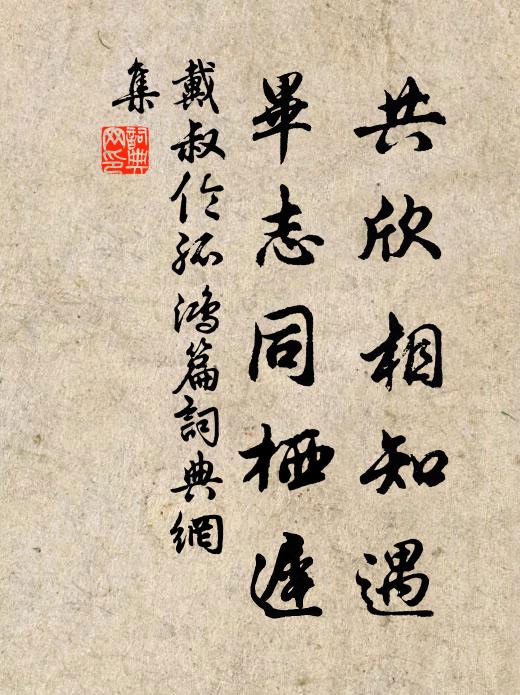 共欣相知遇
畢志同栖遲
戴叔伦孤鴻篇詞典網
集
詞典
网印